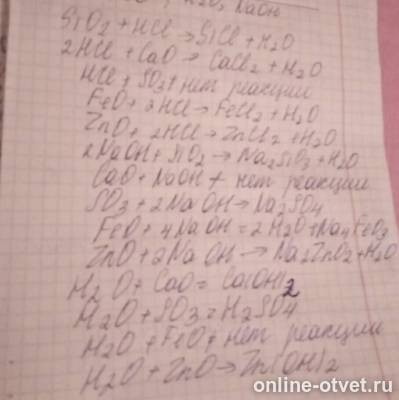 H2O, NaOH
SiO2 + HCl → SiCl + H2O
2HCl + CaO → CaCl2 + H2O
HCl + SO3 + нет реакции
FeO + 2HCl → FeCl2 + H2O
ZnO + 2HCl → ZnCl2 + H2O
2NaOH + SiO2 → Na2SiO3 + H2O
CaO + NaOH + нет реакции
SO3 + 2NaOH → Na2SO4
FeO + 4NaOH = 2H2O + Na4FeO3
ZnO + 2NaOH → Na2ZnO2 + H2O
H2O + CaO = Ca(OH)2
H2O + SO3 = H2SO4
H2O + FeO + нет реакции
H2O + ZnO → Zn(OH)2
online-otvet.ru